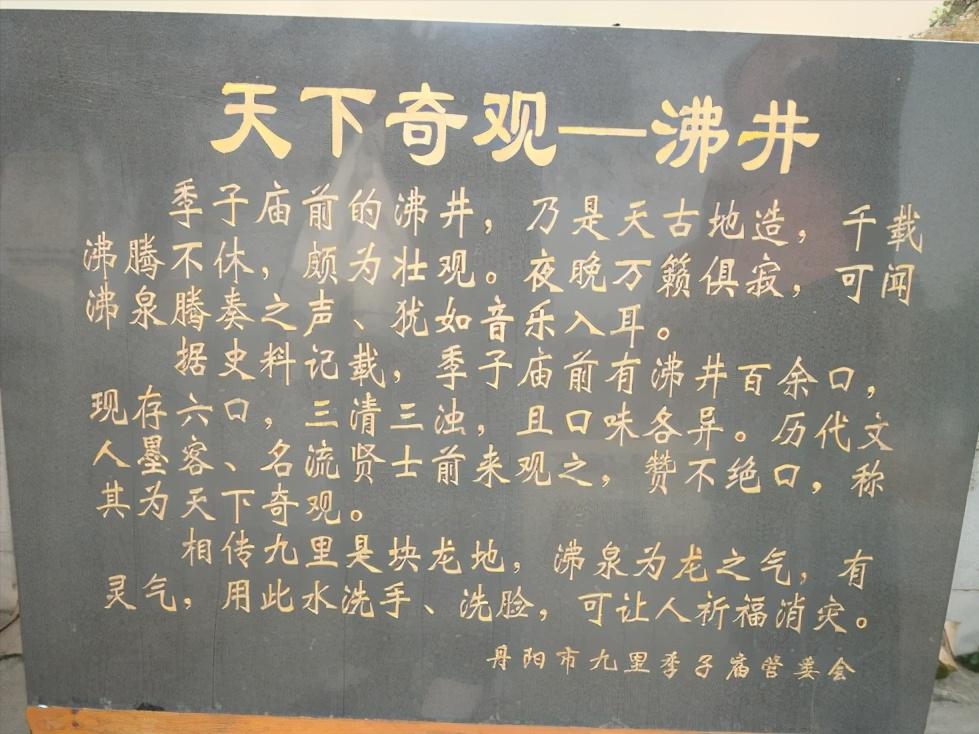 天下奇观—沸井
季子庙前的沸井，乃是天古地造，千载
沸腾不休，颇为壮观。夜晚万籁俱寂，可闻
沸泉腾奏之声、犹如音乐入耳。
据史料记载，季子庙前有沸井百余口，
现存六口，三清三浊，且口味各异。历代文
人墨客、名流贤士前来观之，赞不绝口，称
其为天下奇观。
相传九里是块龙地，沸泉为龙之气，有
灵气，用此水洗手、洗脸，可让人祈福消灾。
丹阳市九里季子庙管委会